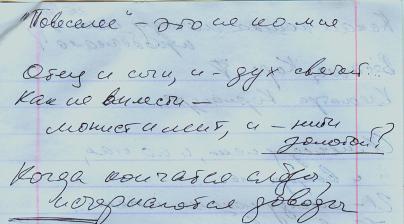 "Повеселее" - это не по мне
Отец и сын, и - дух святой.
Как не вплести -
монист и лент, и - нити
золотой?
Когда кончатся слёзы,
исчерпаются доводы